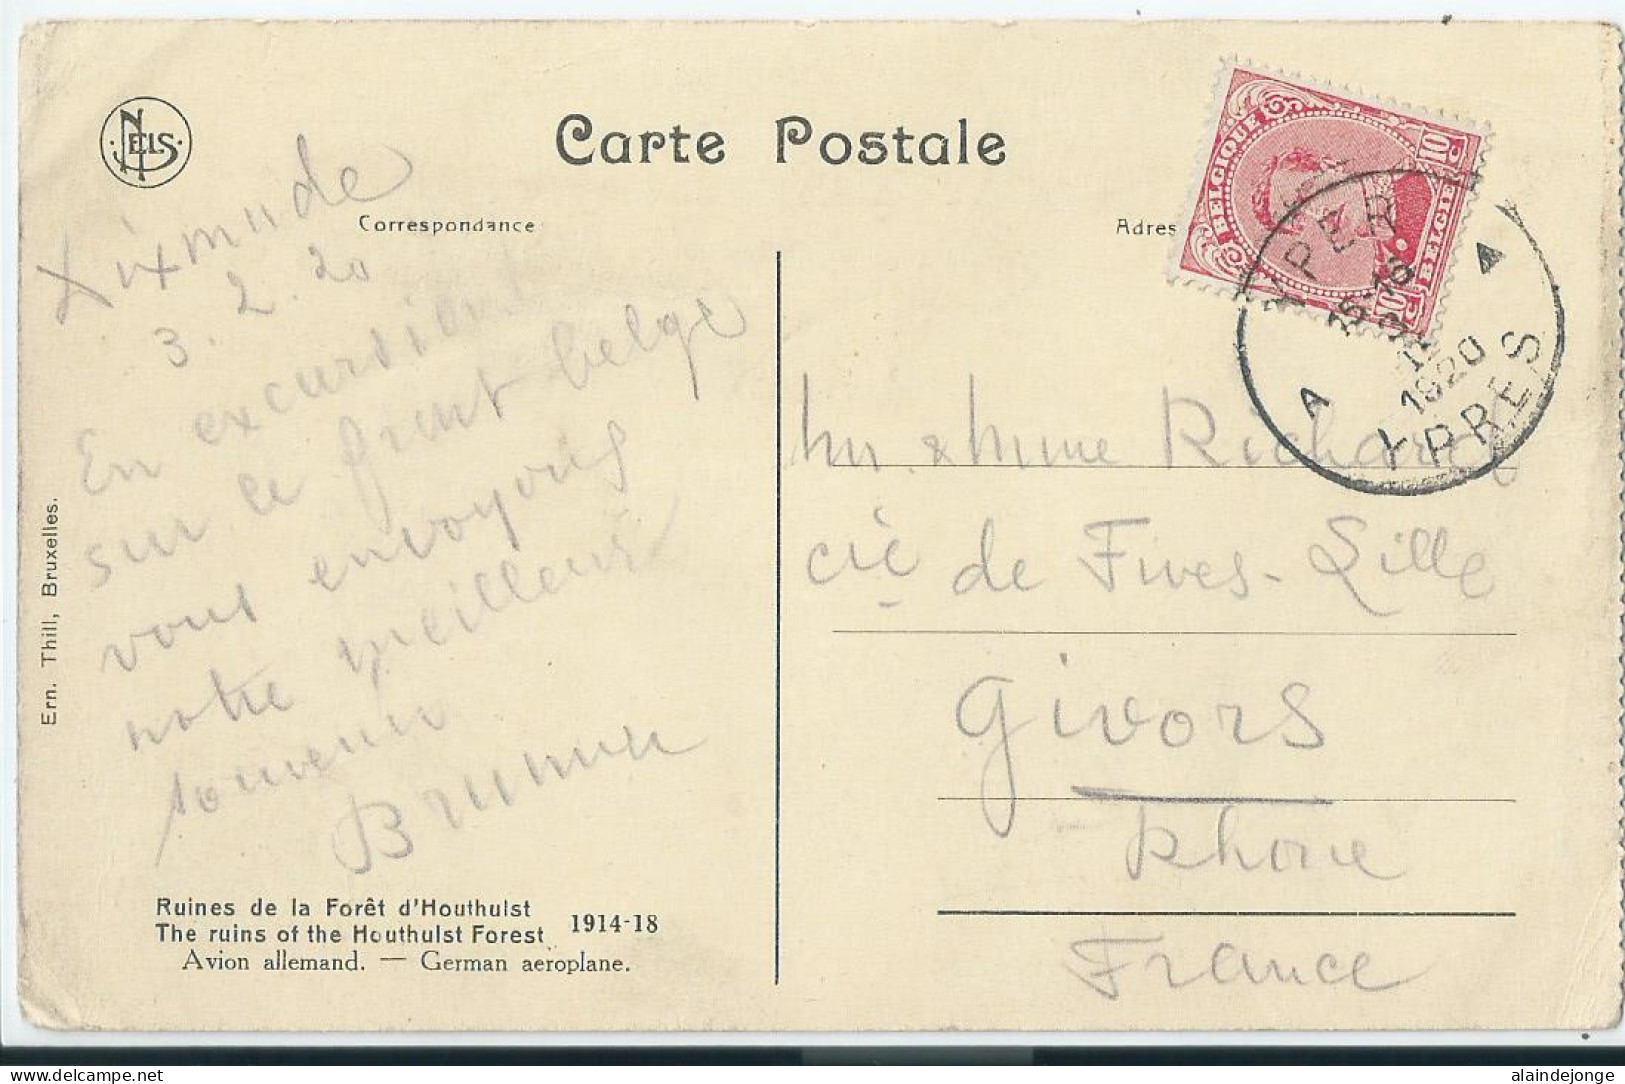 NELS
Carte Postale
Correspondance
Adres
BELGIQUE
BELGIË
10c
10c
YPER
15-16
1920
YPRES
A
Dixmude
3.2.20
En excursion
sur le front belge
vous envoyons
notre meilleur
souvenir
Mr. & Mme Richard
cie de Fives-Lille
Givors
Rhône
France
Ern. Thill, Bruxelles.
Ruines de la Forêt d'Houthulst
The ruins of the Houthulst Forest
1914-18
Avion allemand. — German aeroplane.
alaindejonge